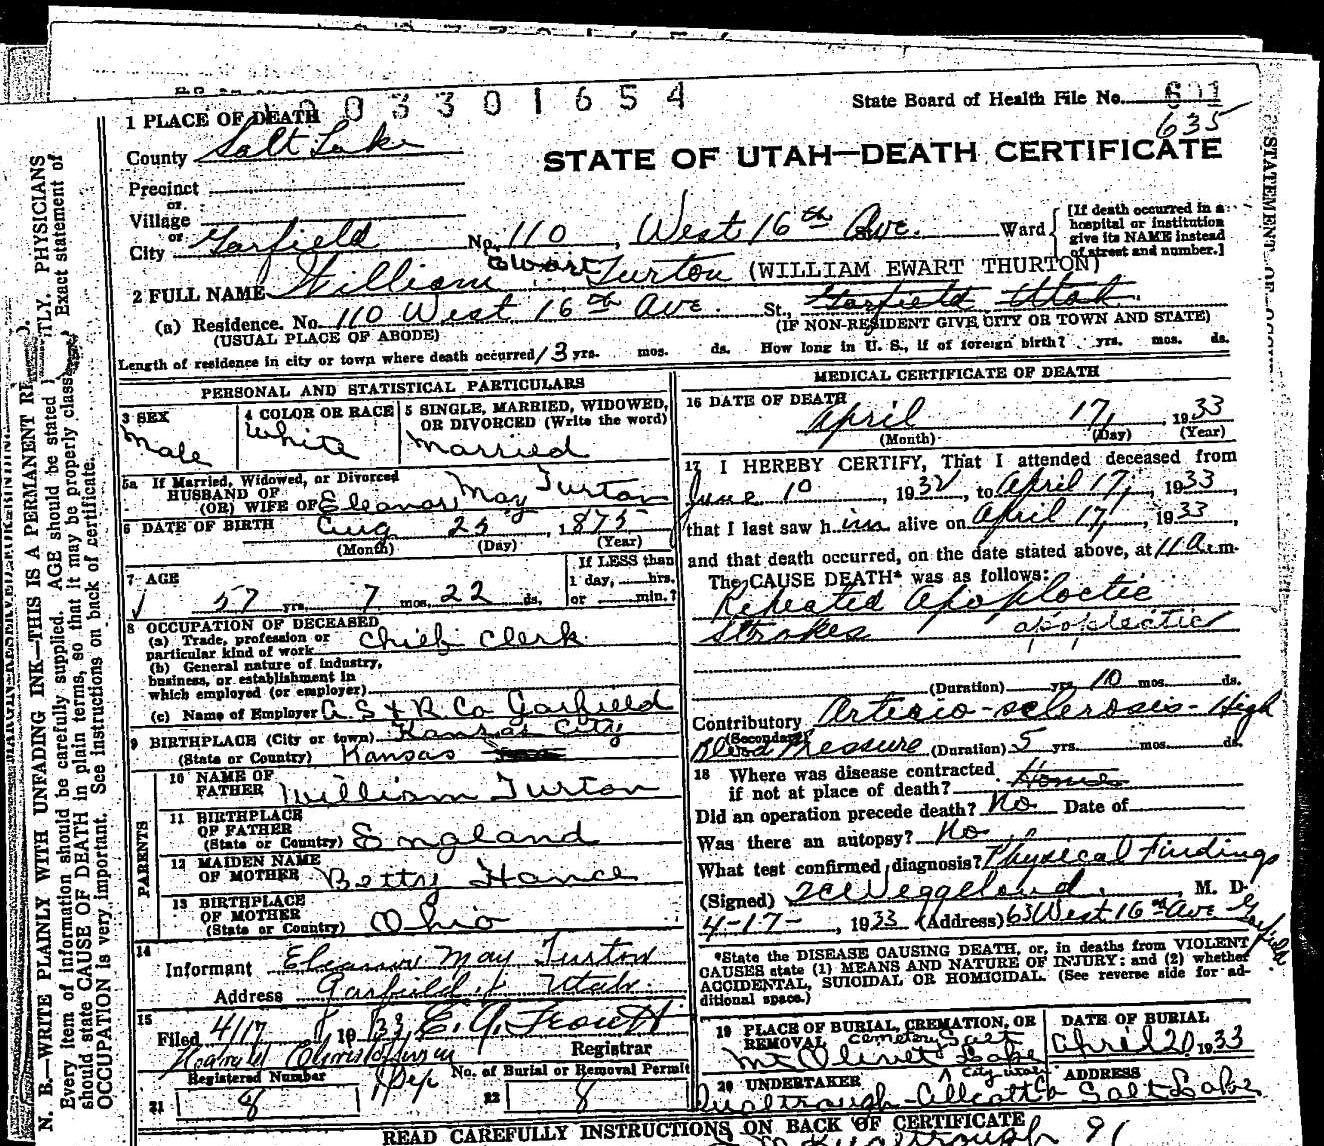 003301654
State Board of Health File No. 601
635
STATE OF UTAH—DEATH CERTIFICATE
1 PLACE OF DEATH
County Salt Lake
Precinct
or
Village
or
City Garfield No. 110, West 16th Ave. Ward
[If death occurred in a hospital or institution give its NAME instead of street and number.]
2 FULL NAME William Ewart Turton (WILLIAM EWART THURTON)
(a) Residence. No. 110 West 16th Ave. St., Garfield Utah
(USUAL PLACE OF ABODE) (IF NON-RESIDENT GIVE CITY OR TOWN AND STATE)
Length of residence in city or town where death occurred 13 yrs. mos. ds. How long in U. S., if of foreign birth? yrs. mos. ds.
PERSONAL AND STATISTICAL PARTICULARS
3 SEX
Male
4 COLOR OR RACE
White
5 SINGLE, MARRIED, WIDOWED, OR DIVORCED (Write the word)
Married
5a If Married, Widowed, or Divorced
HUSBAND OF
(OR) WIFE OF Eleanor May Turton
6 DATE OF BIRTH Aug 25, 1875
(Month) (Day) (Year)
7 AGE
57 yrs. 7 mos. 22 ds.
If LESS than 1 day, hrs. or min.?
8 OCCUPATION OF DECEASED
(a) Trade, profession or particular kind of work Chief Clerk
(b) General nature of industry, business, or establishment in which employed (or employer)
(c) Name of Employer A. S & R Co Garfield
9 BIRTHPLACE (City or town) Kansas City
(State or Country) Kansas
PARENTS
10 NAME OF FATHER William Turton
11 BIRTHPLACE OF FATHER (State or Country) England
12 MAIDEN NAME OF MOTHER Betty Hance
13 BIRTHPLACE OF MOTHER (State or Country) Ohio
14 Informant Eleanor May Turton
Address Garfield, Utah.
15 Filed 4/17, 1933
Registrar
Registered Number
21 8
No. of Burial or Removal Permit
22 8
MEDICAL CERTIFICATE OF DEATH
16 DATE OF DEATH
April 17, 1933
(Month) (Day) (Year)
17 I HEREBY CERTIFY, That I attended deceased from
June 10, 1932, to April 17, 1933,
that I last saw him alive on April 17, 1933,
and that death occurred, on the date stated above, at 11 a.m.
The CAUSE DEATH* was as follows:
Repeated apoploctic
Strokes apopleatic
(Duration) yrs. 10 mos. ds.
Contributory Arterio-sclerosis-High
(Secondary)
Blood Pressure (Duration) 5 yrs. mos. ds.
18 Where was disease contracted
if not at place of death? Home
Did an operation precede death? No Date of
Was there an autopsy? No
What test confirmed diagnosis? Physical Findings
(Signed) Weggeland, M. D.
4-17-, 1933 (Address) 63 West 16th Ave Garfield.
*State the DISEASE CAUSING DEATH, or, in deaths from VIOLENT
CAUSES state (1) MEANS AND NATURE OF INJURY; and (2) whether
ACCIDENTAL, SUICIDAL OR HOMICIDAL. (See reverse side for additional space.)
19 PLACE OF BURIAL, CREMATION, OR REMOVAL
Mt Olivet Cemetery Salt Lake City Utah
DATE OF BURIAL
April 20, 1933
20 UNDERTAKER ADDRESS
Salt Lake
READ CAREFULLY INSTRUCTIONS ON BACK OF CERTIFICATE
91
N. B.—WRITE PLAINLY WITH UNFADING INK—THIS IS A PERMANENT
Every item of information should be carefully supplied. AGE should be stated
PHYSICIANS
should state CAUSE OF DEATH in plain terms, so that it may be properly
Exact statement of
OCCUPATION is very important. See instructions on back of certificate.
STATEMENT OF